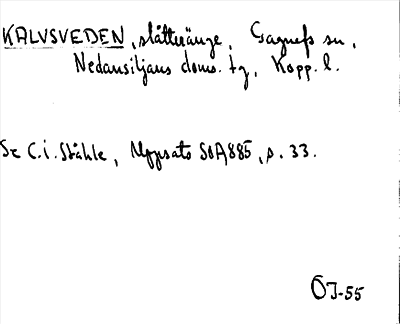 KALVSVEDEN, slåtteränge, Gagnefs sn,
Nedansiljans doms. tg, Kopp. l.
Se C.I. Ståhle, Uppsats SOA 885, s. 33.
ÖJ-55